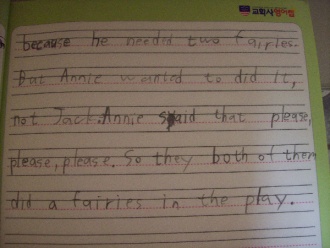 교학사
because he needed two fairies.
But Annie wanted to did it,
not Jack. Annie said that please,
please, please. So they both of them
did a fairies in the play.